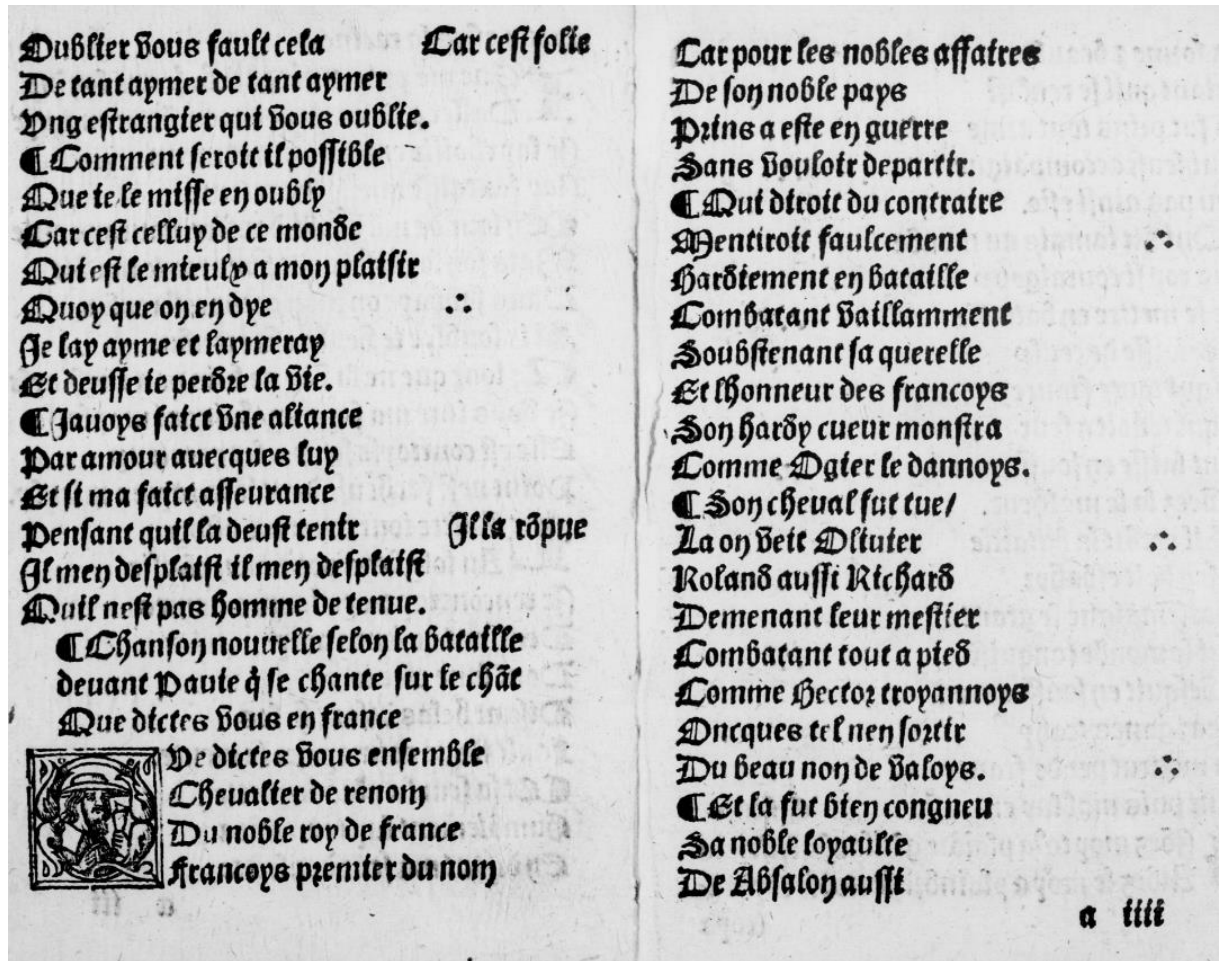 Oublier vous fault cela Car cest folie
De tant aymer de tant aymer
Ung estrangier qui vous oublie.
¶ Comment seroit il possible
Que ie le misse en oubly
Car cest celluy de ce monde
Qui est le mieulx a mon plaisir
Quoy que on en dye ∴
Je lay ayme et laymeray
Et deusse ie perdre la vie.
¶ Jauoys faict vne aliance
Par amour auecques luy
Et si ma faict asseurance
Pensant quil la deust tenir Il la rõpue
Il men desplaist il men desplaist
Quil nest pas homme de tenue.
¶ Chanson nouuelle selon la bataille
deuant Pauie q̃ se chante sur le chãt
Que dictes vous en france
Ve dictes vous ensemble
Cheualier de renom
Du noble roy de france
Francoys premier du nom
Car pour les nobles affaires
De son noble pays
Prins a este en guerre
Sans vouloir departir.
¶ Qui diroit du contraire
Mentiroit faulcement ∴
Hardiement en bataille
Combatant vaillamment
Soubstenant sa querelle
Et lhonneur des francoys
Son hardy cueur monstra
Comme Ogier le dannoys.
¶ Son cheual fut tue/
La on veit Oliuier ∴
Roland aussi Richard
Demenant leur mestier
Combatant tout a pied
Comme Hector troyannoys
Oncques tel nen sortit
Du beau non de valoys. ∴
¶ Et la fut bien congneu
Sa noble loyaulte
De Absalon aussi
a iiii